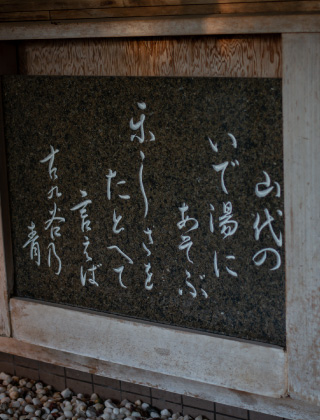 山代の
いで湯に
あそぶ
楽しさを
たとへて
言えば
古九谷の
青